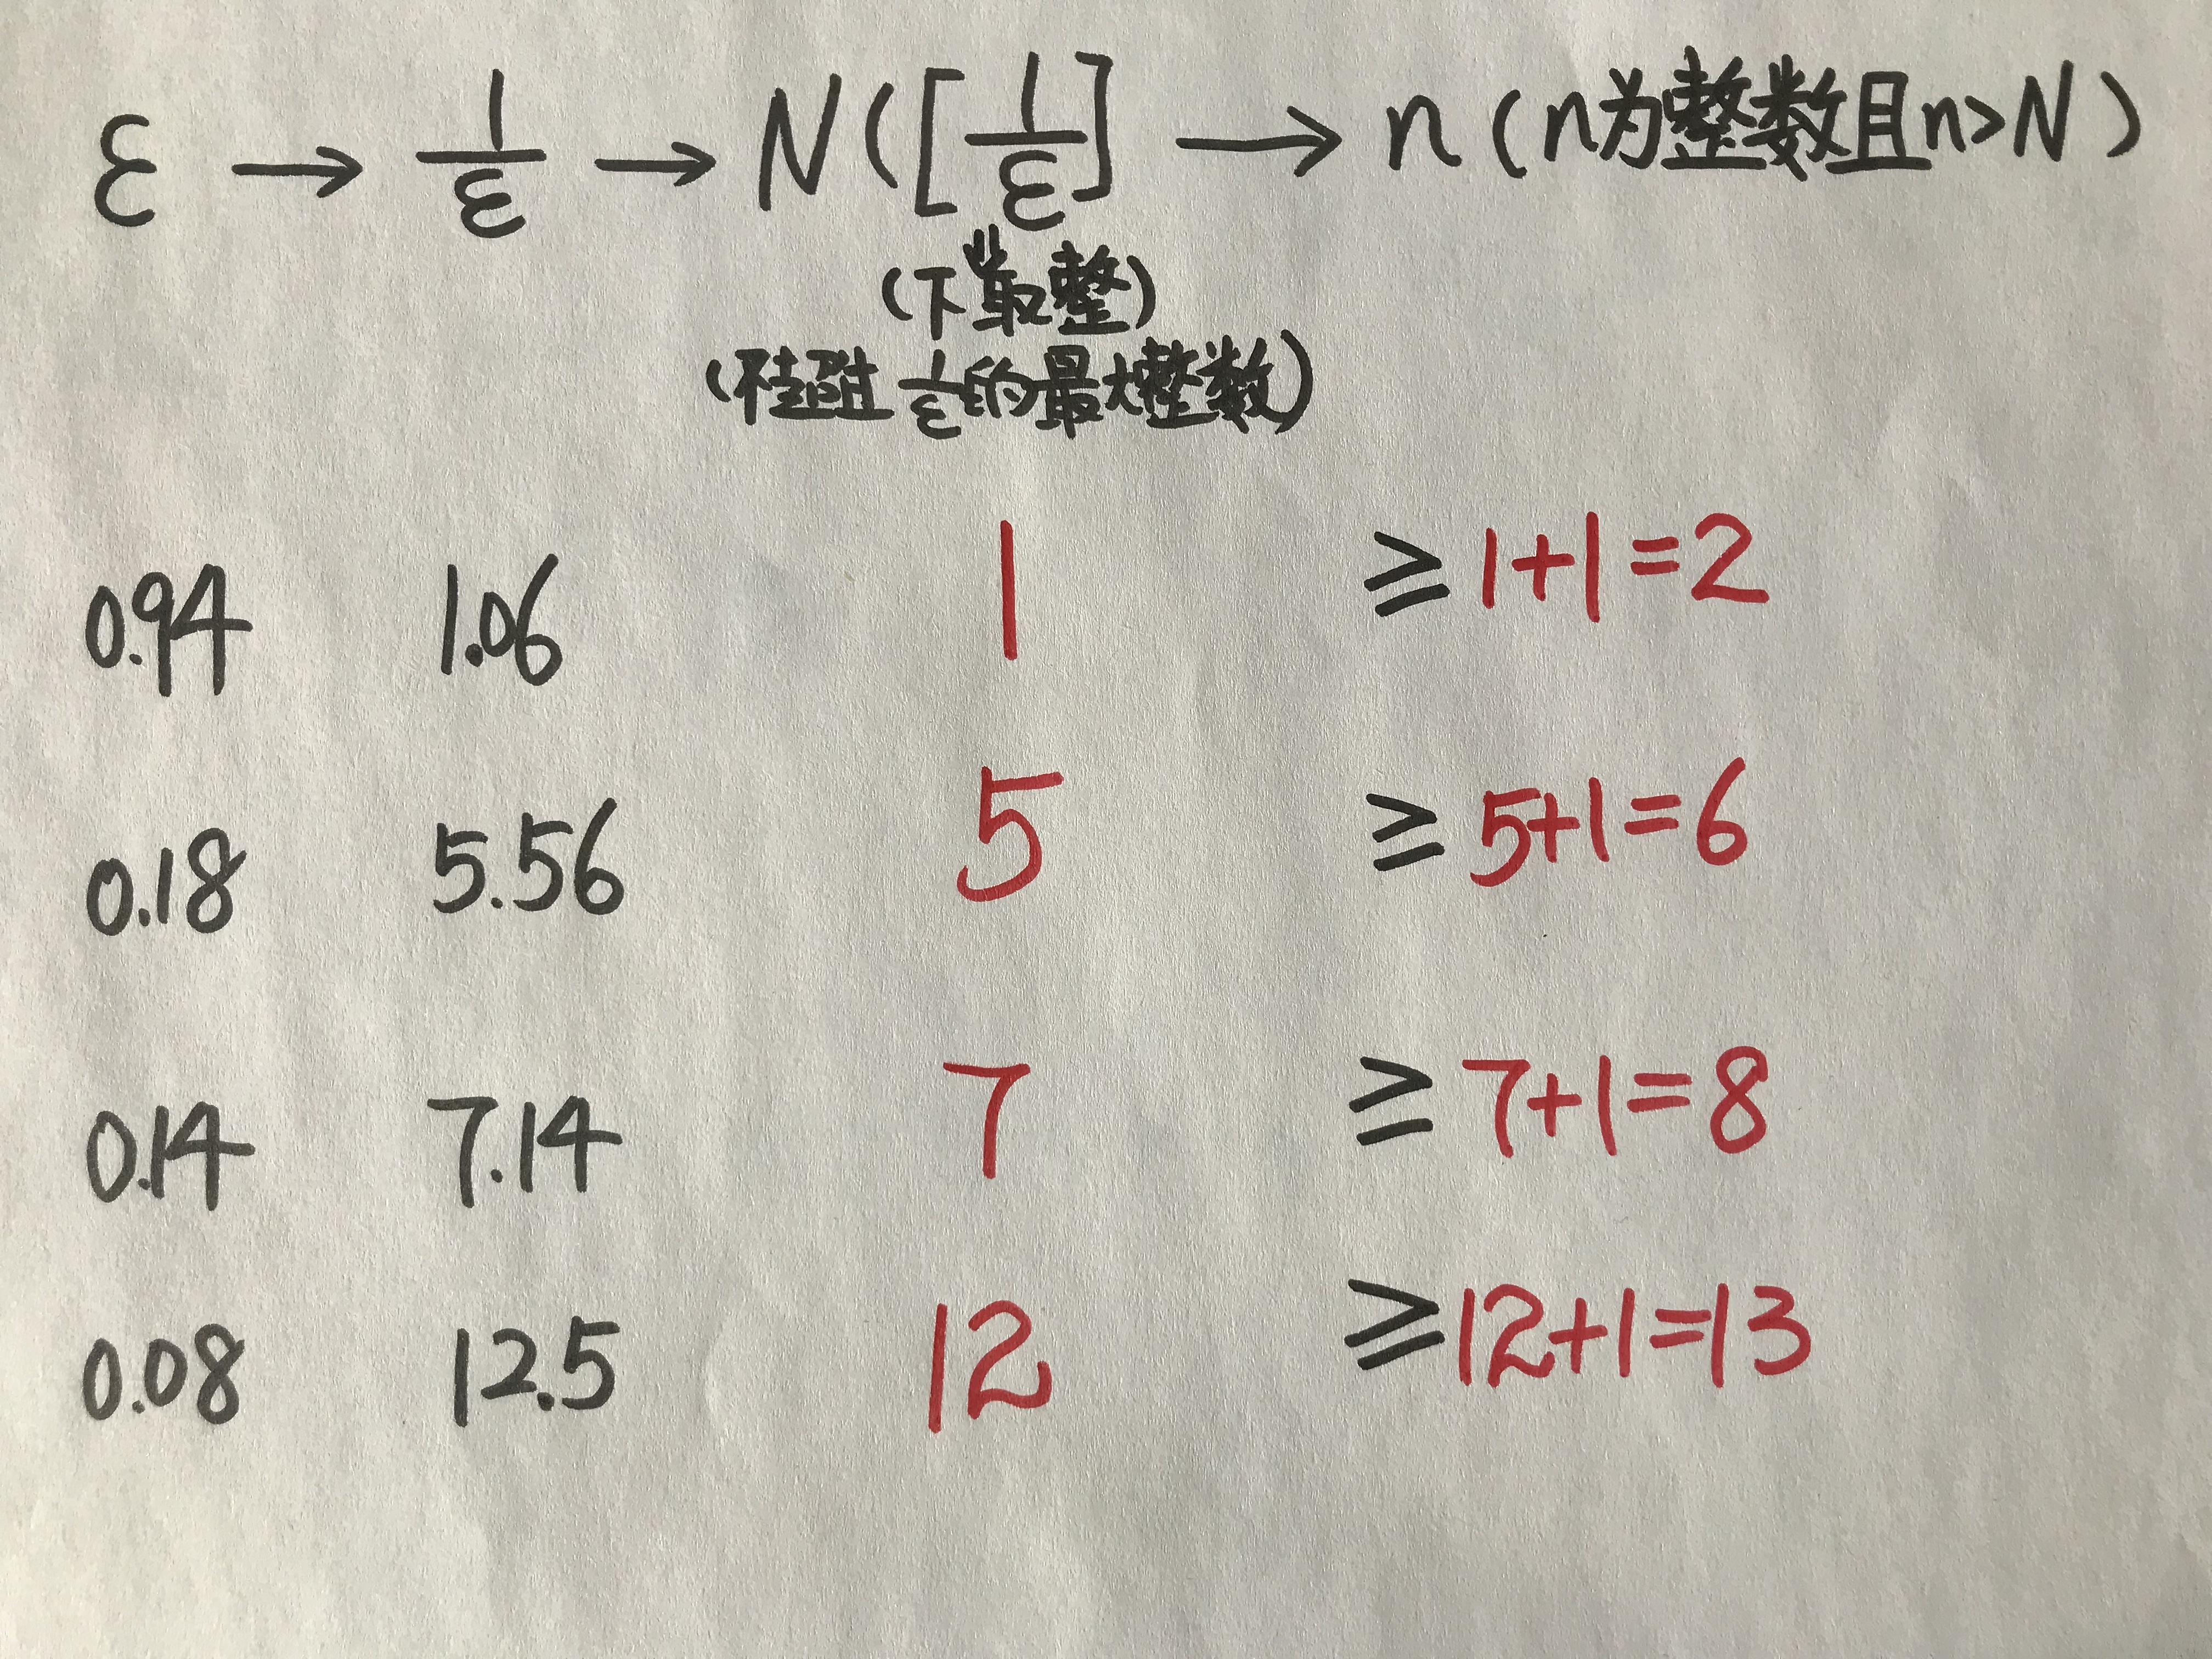 ε → 1/ε → N([1/ε] → n(n为整数且n>N)
(下取整)
(不超过1/ε的最大整数)
0.94 1.06 1 ≥1+1=2
0.18 5.56 5 ≥5+1=6
0.14 7.14 7 ≥7+1=8
0.08 12.5 12 ≥12+1=13